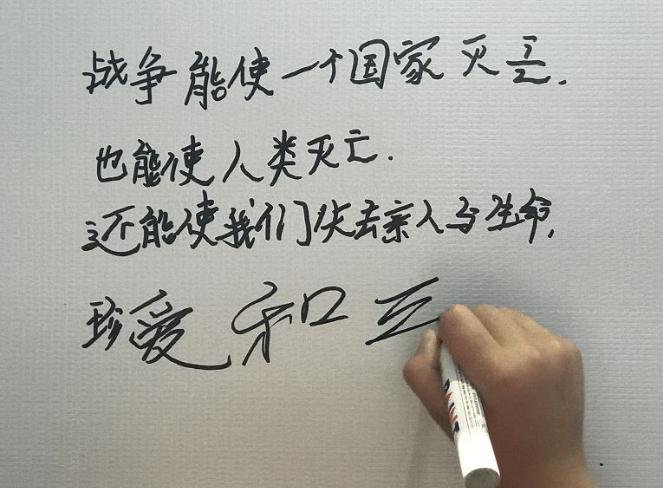 战争能使一个国家灭亡.
也能使人类灭亡.
还能使我们失去亲人与生命,
珍爱和